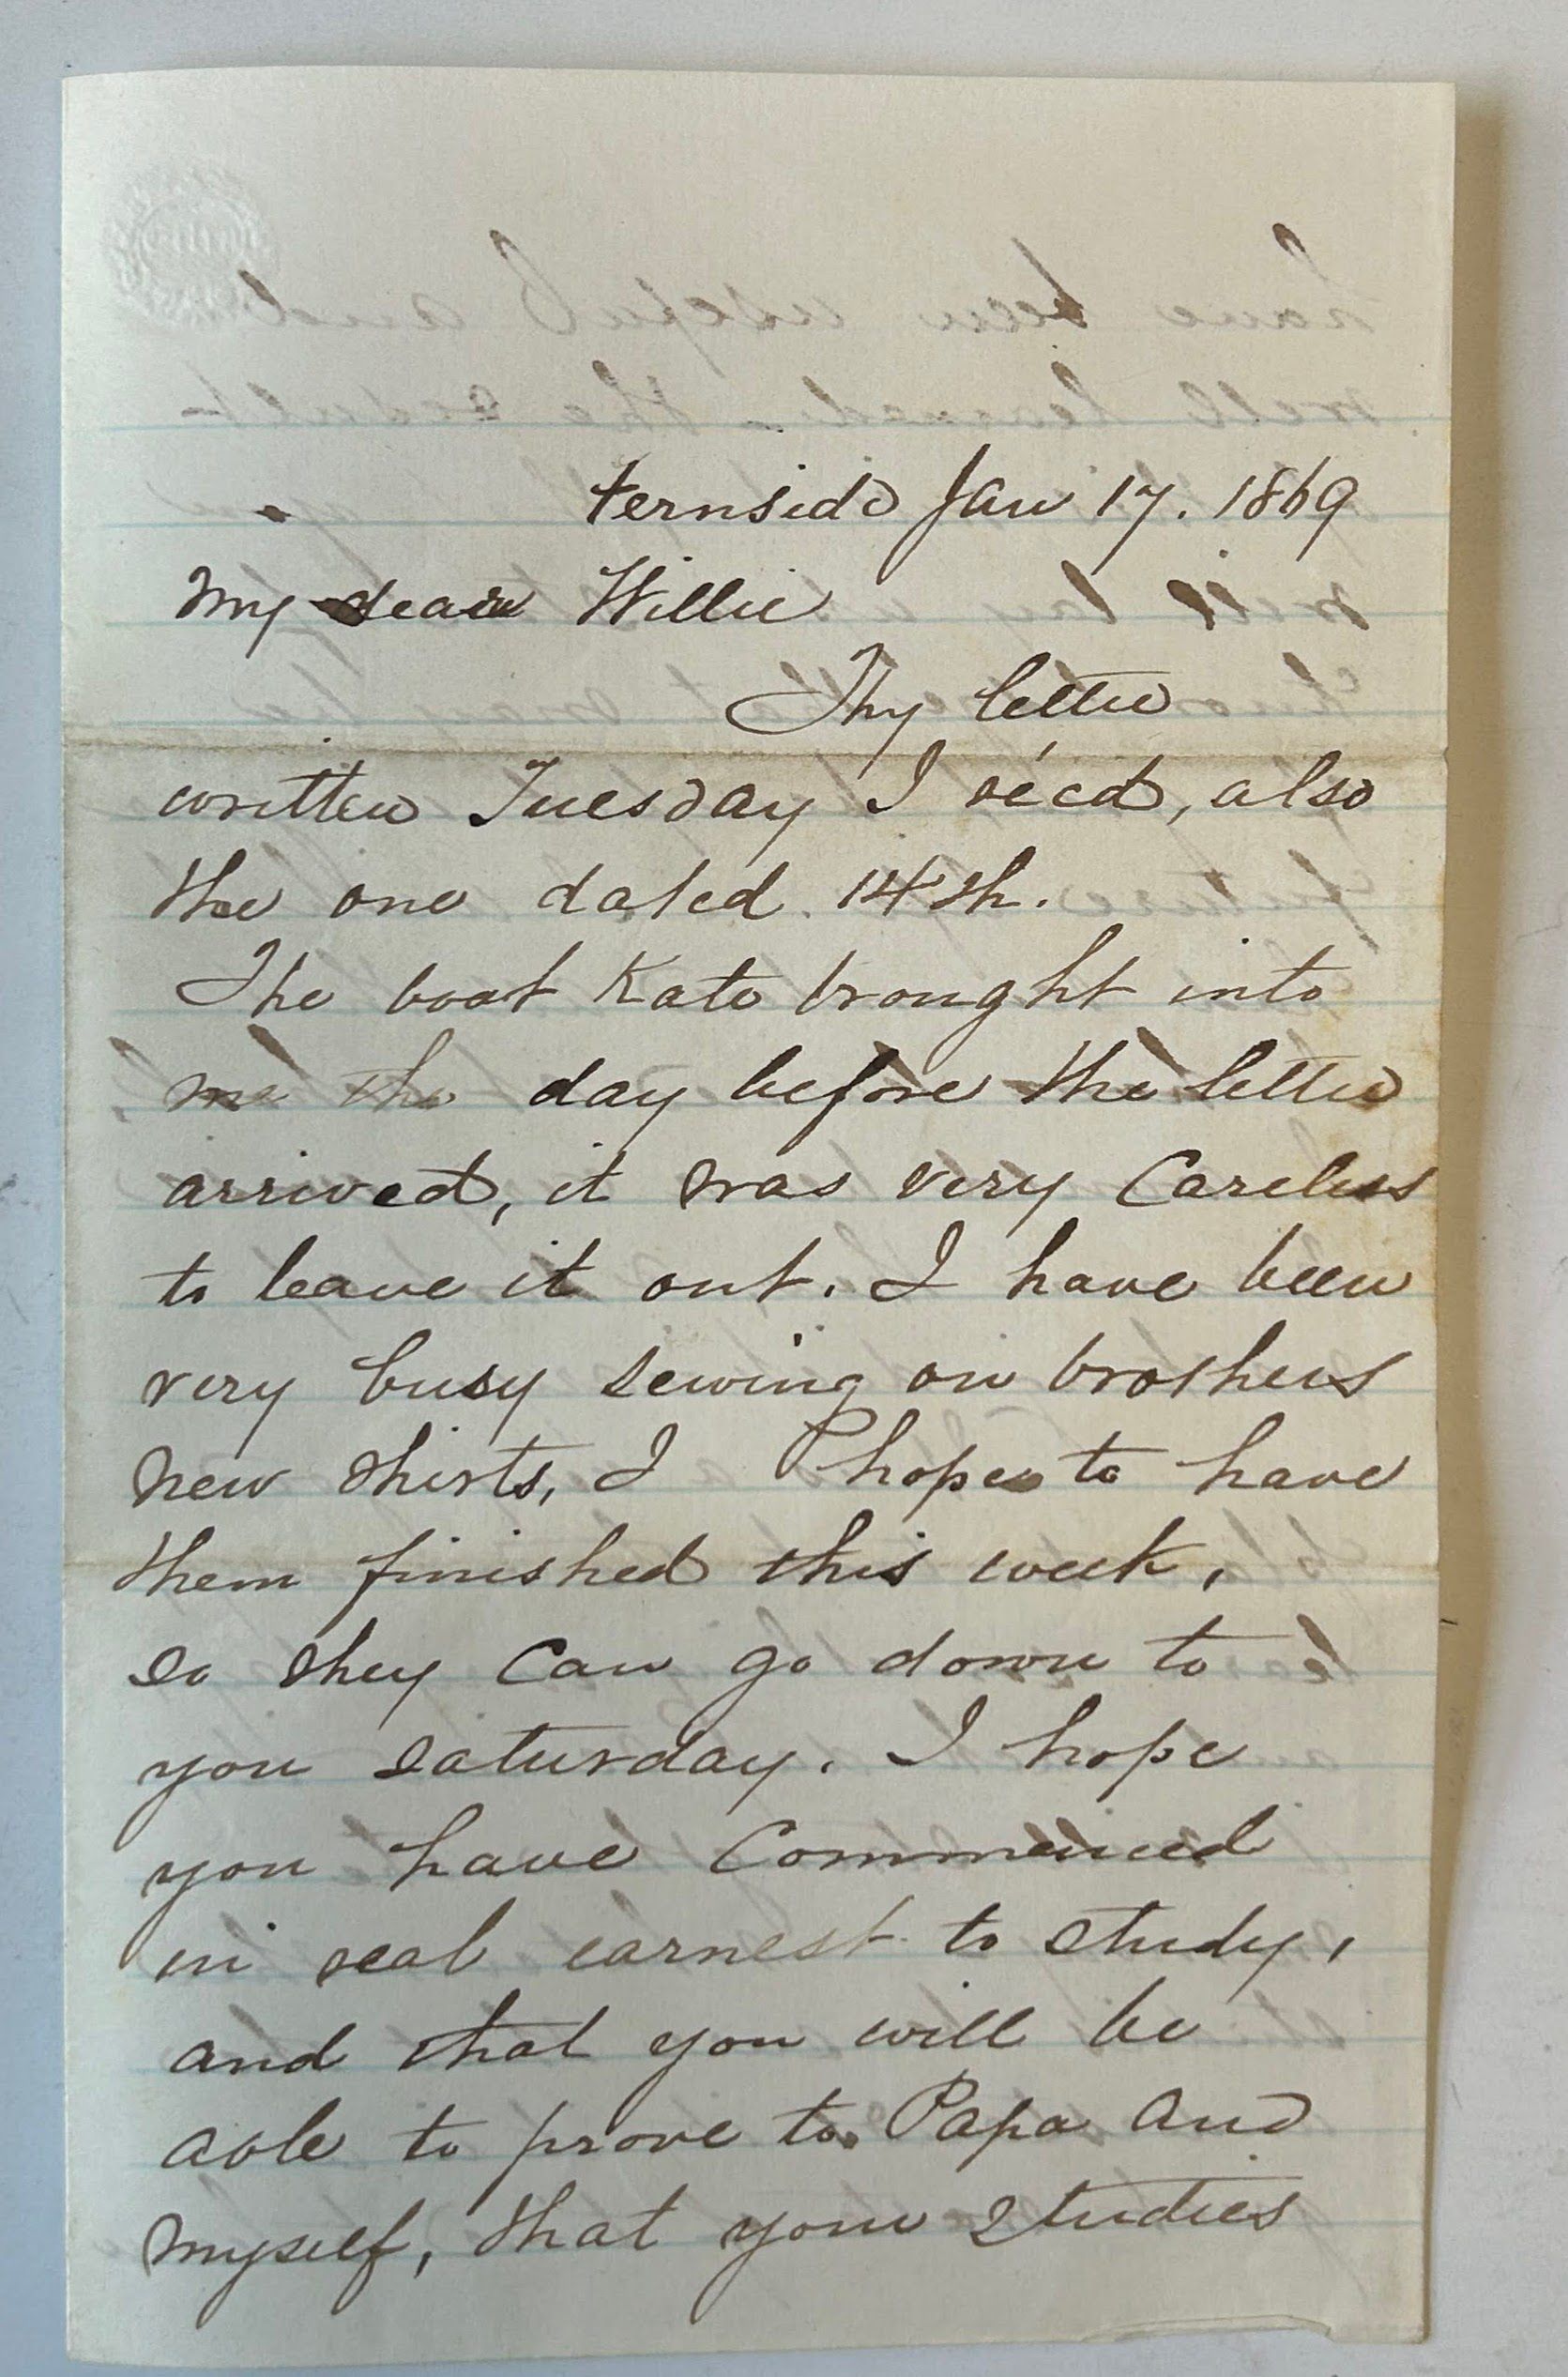 Fernside Jan 17. 1869
My dear Willie
Thy letter
written Tuesday I récd, also
the one dated 14th.
The boat Kate brought into
me the day before the letter
arrived, it was very Careless
to leave it out. I have been
very busy sewing on brothers
new shirts, I hope to have
them finished this week,
so they can go down to
you Saturday. I hope
you have Commenced
in real earnest to study,
and that you will be
able to prove to Papa and
myself, that your studies